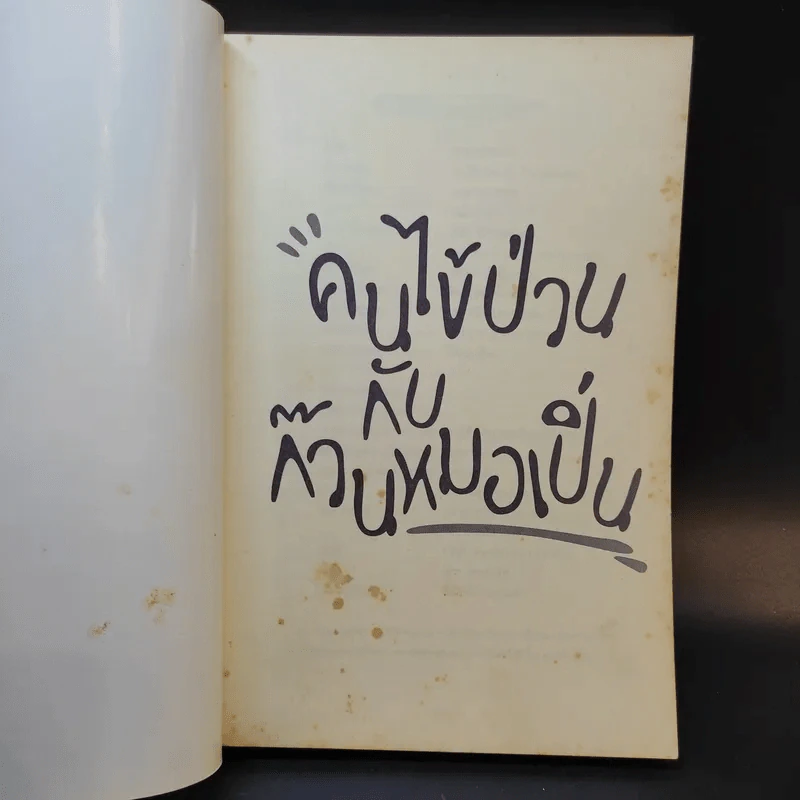 คนไข้ป่วน
กับ
ก๊วนหมอเปิ่น